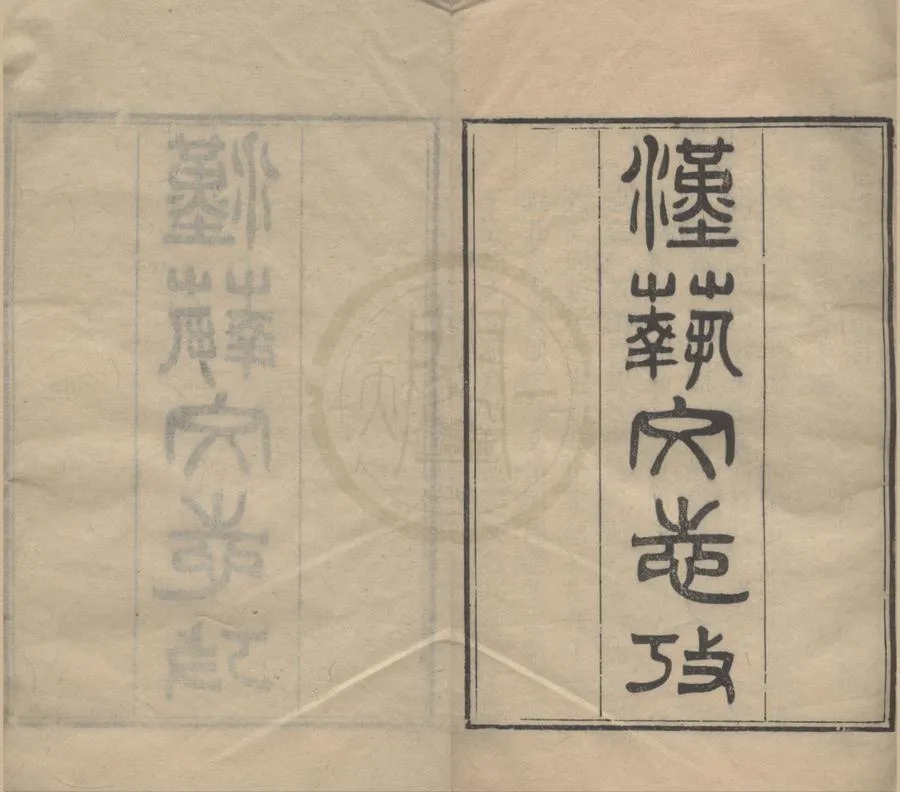 漢蓺文志攷